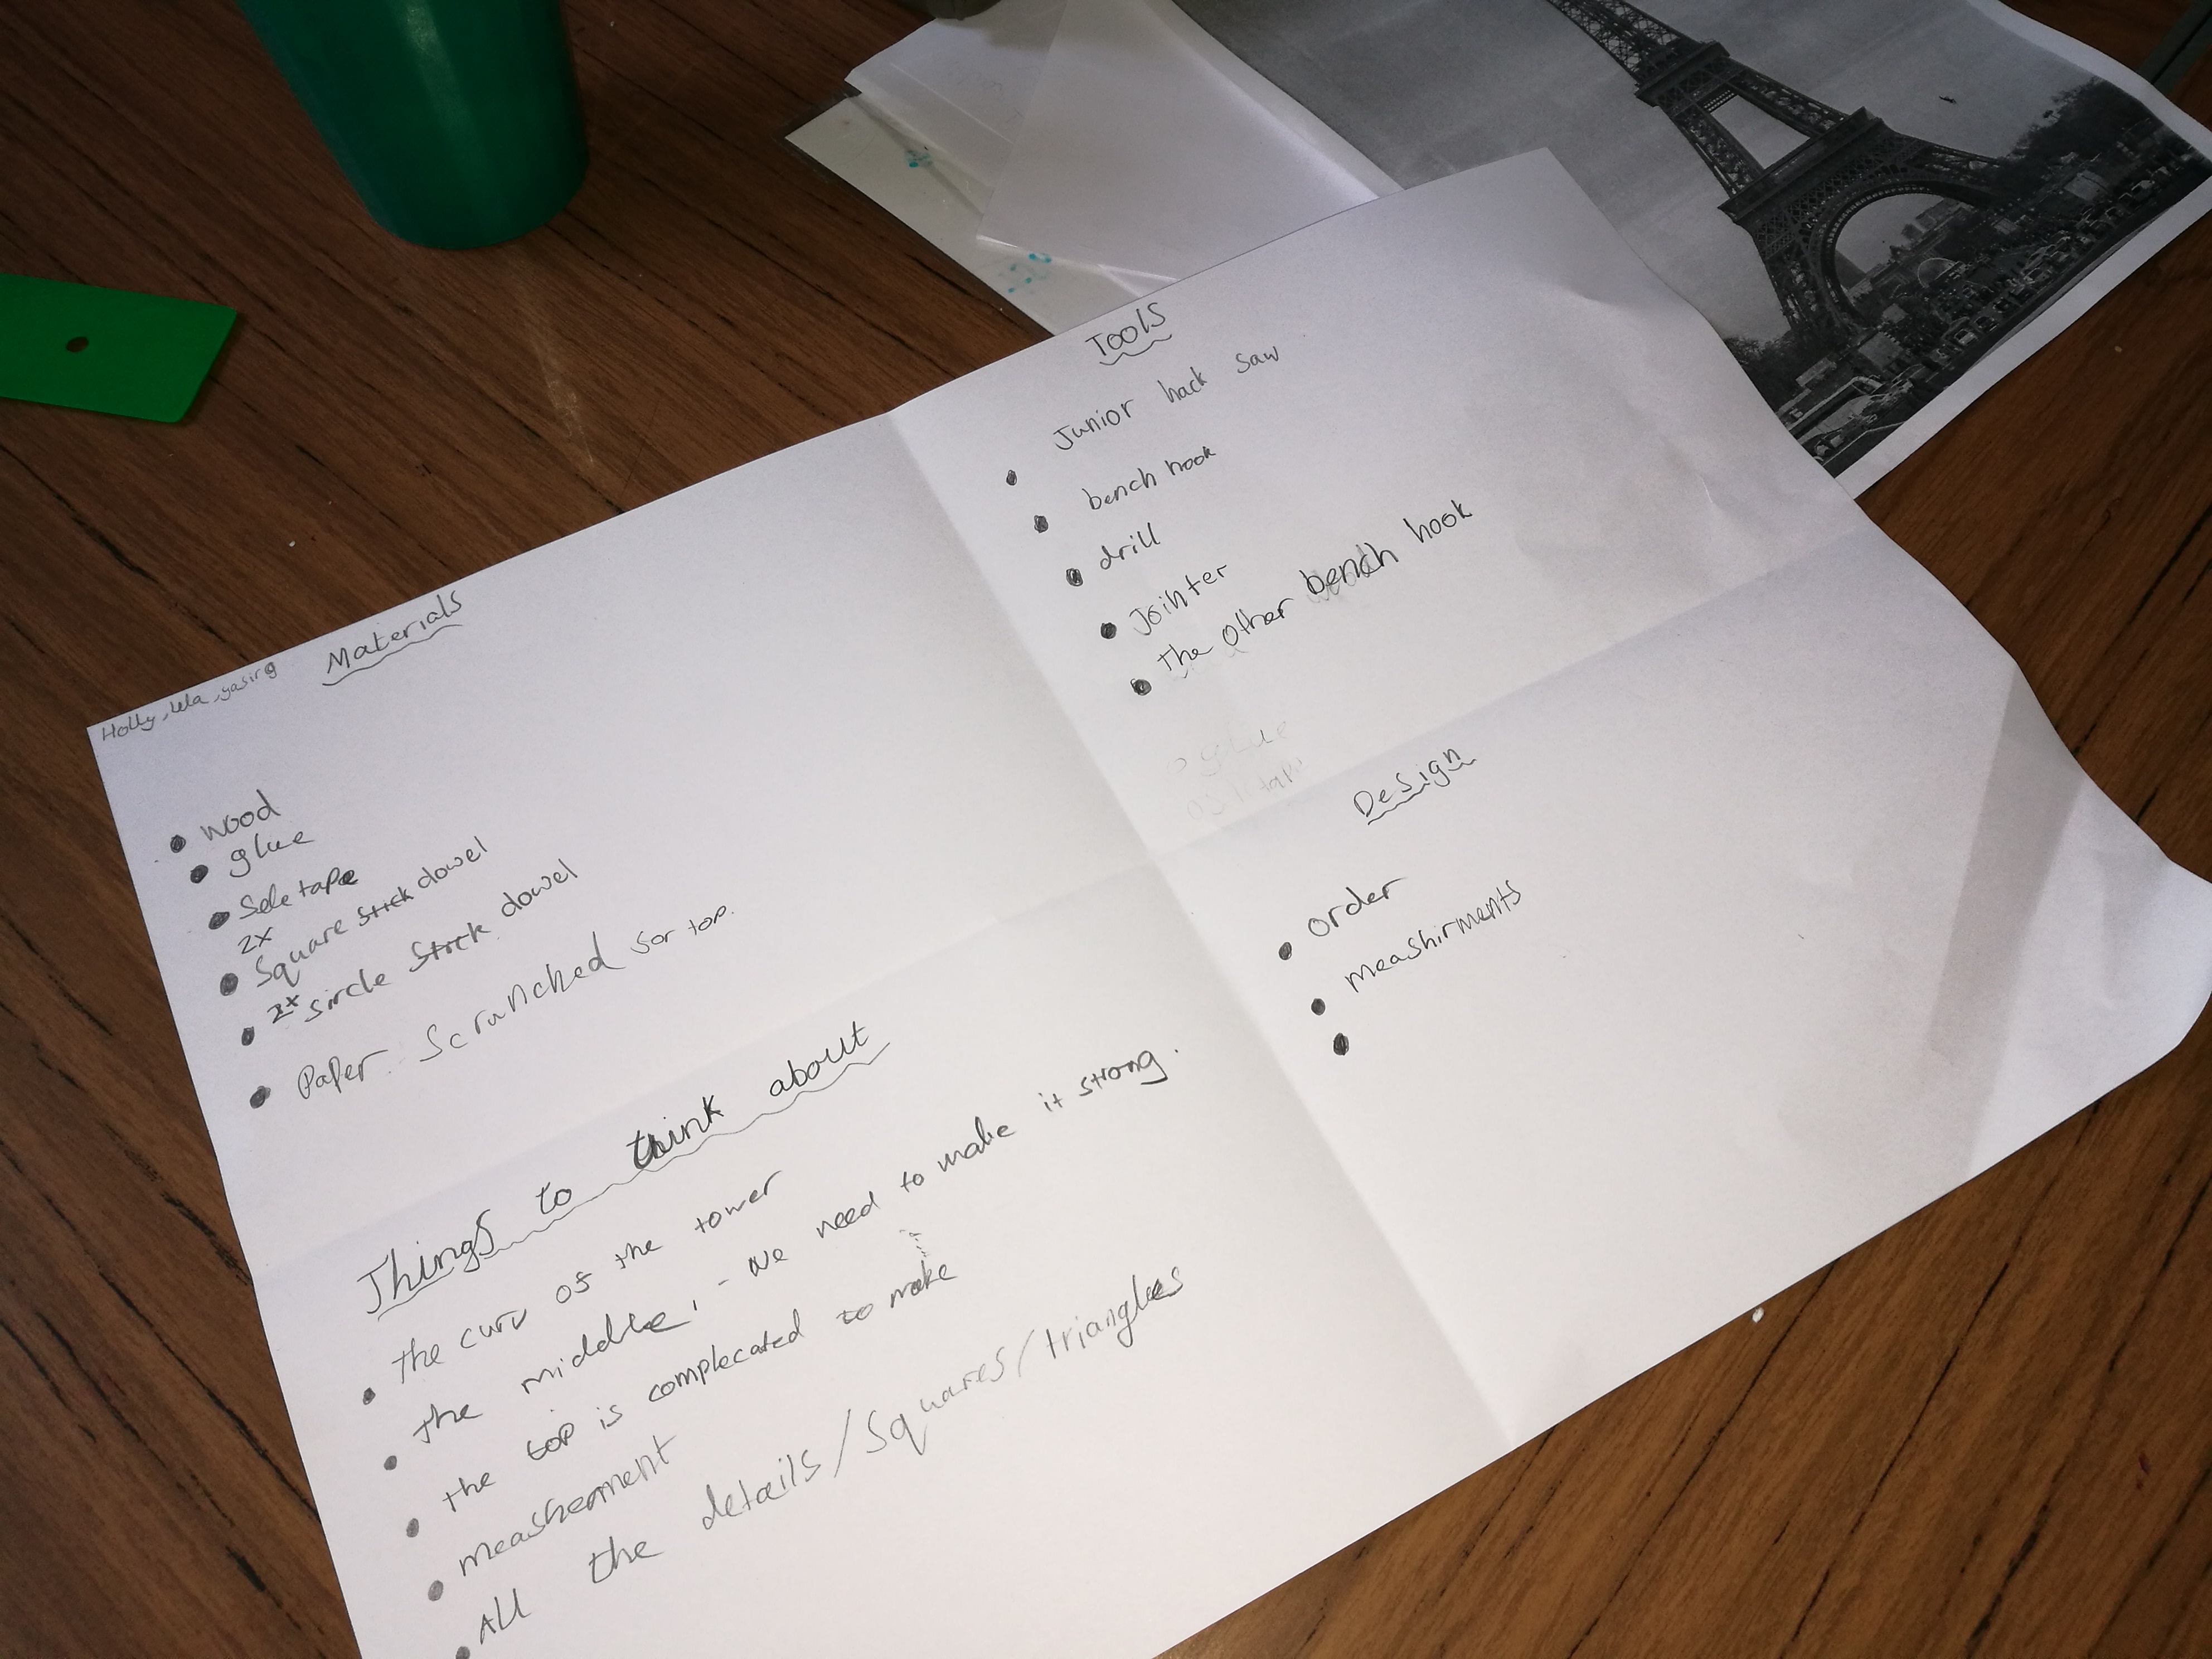 Holly, lela, yasirg
Materials
• wood
• glue
• Seletape
2x
• Square stick dowel
• 2x sircle stick dowel
• Paper. Scrunched for top.
Tools
• Junior hack saw
• bench hook
• drill
• Jointer
• the other bench hook
glue
Things to think about
• the curv of the tower
• the middle, - we need to make it strong.
• the top is complecated to make
• measherment
• All the details/Squares/triangles
Design
• order
• meashirments
•